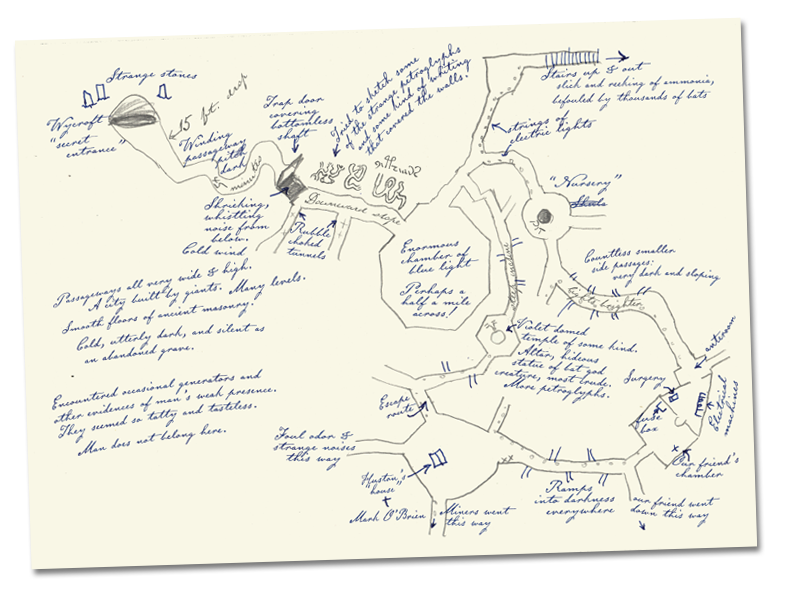 Strange stones
Wycroft
"secret
entrance"
15 ft. drop
Winding
passageway
pitch
dark
Trap door
covering
bottomless
shaft
Tried to sketch some
of the strange petroglyphs
and some kind of writing
that covered the walls!
Stairs up & out
slick and reeking of ammonia,
befouled by thousands of bats
strings of
electric lights
"Nursery"
Shrieking,
whistling
noise from
below.
Cold wind
Downward slope
Rubble
choked
tunnels
Enormous
chamber of
blue light
Perhaps a
half a mile
across!
Countless smaller
side passages:
very dark and sloping
lights brighter
Passageways all very wide & high.
A city built by giants. Many levels.
Smooth floors of ancient masonry.
Cold, utterly dark, and silent as
an abandoned grave.
Violet domed
temple of some kind.
Altar, hideous
statue of bat god
creature, most crude.
More petroglyphs.
anteroom
Surgery
fuse
box
Electrical
machines
Encountered occasional generators and
other evidences of man's weak presence.
They seemed so tatty and tasteless.
Man does not belong here.
Escape
route
Foul odor &
strange noises
this way
"Huston's
house"
Mark O'Brien
Miners went
this way
Ramps
into darkness
everywhere
Our friend's
chamber
our friend went
down this way